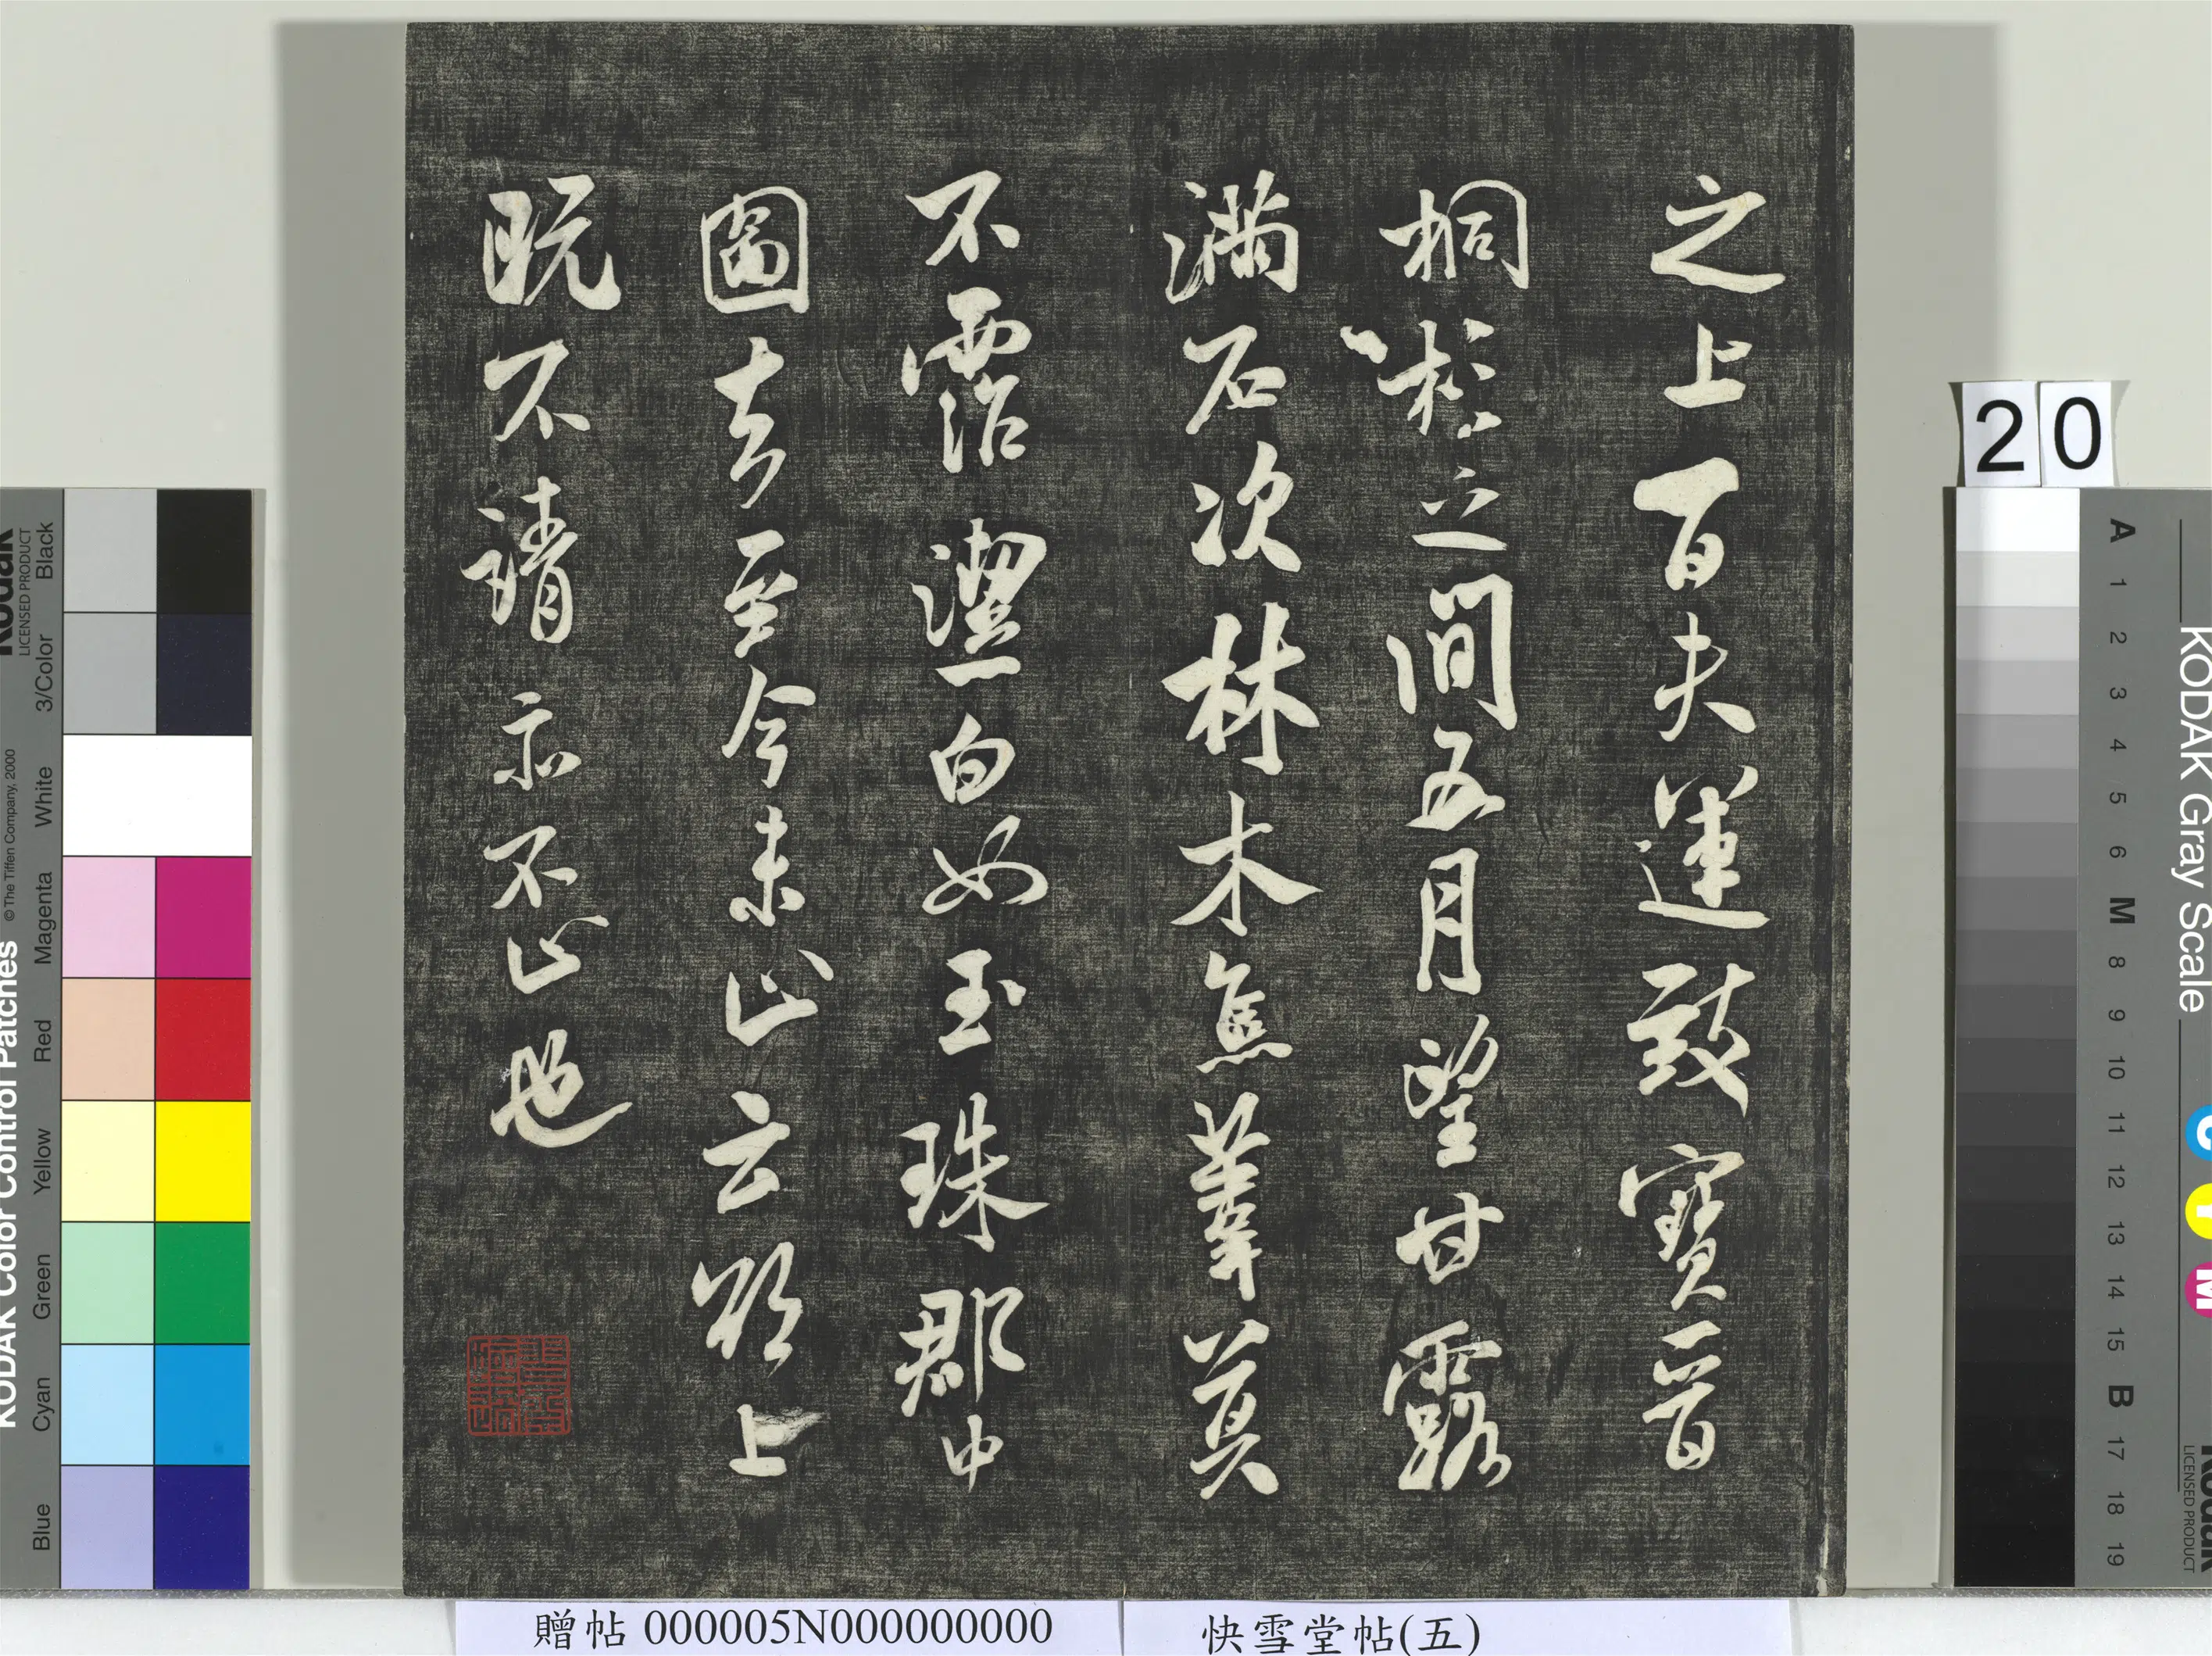 之上百夫運致寶晉
桐杉之間五月望甘露
滿石次林木焦葦莫
不霑潔白如玉珠郡中
圖去至今未止云欲上
既不請亦不止也
20
贈帖 000005N000000000
快雪堂帖(五)
KODAK Color Control Patches
© The Tiffen Company, 2000
Kodak
LICENSED PRODUCT
Blue Cyan Green Yellow Red Magenta White 3/Color Black
KODAK Gray Scale
C Y M
Kodak
LICENSED PRODUCT
A 1 2 3 4 5 6 M 8 9 10 11 12 13 14 15 B 17 18 19